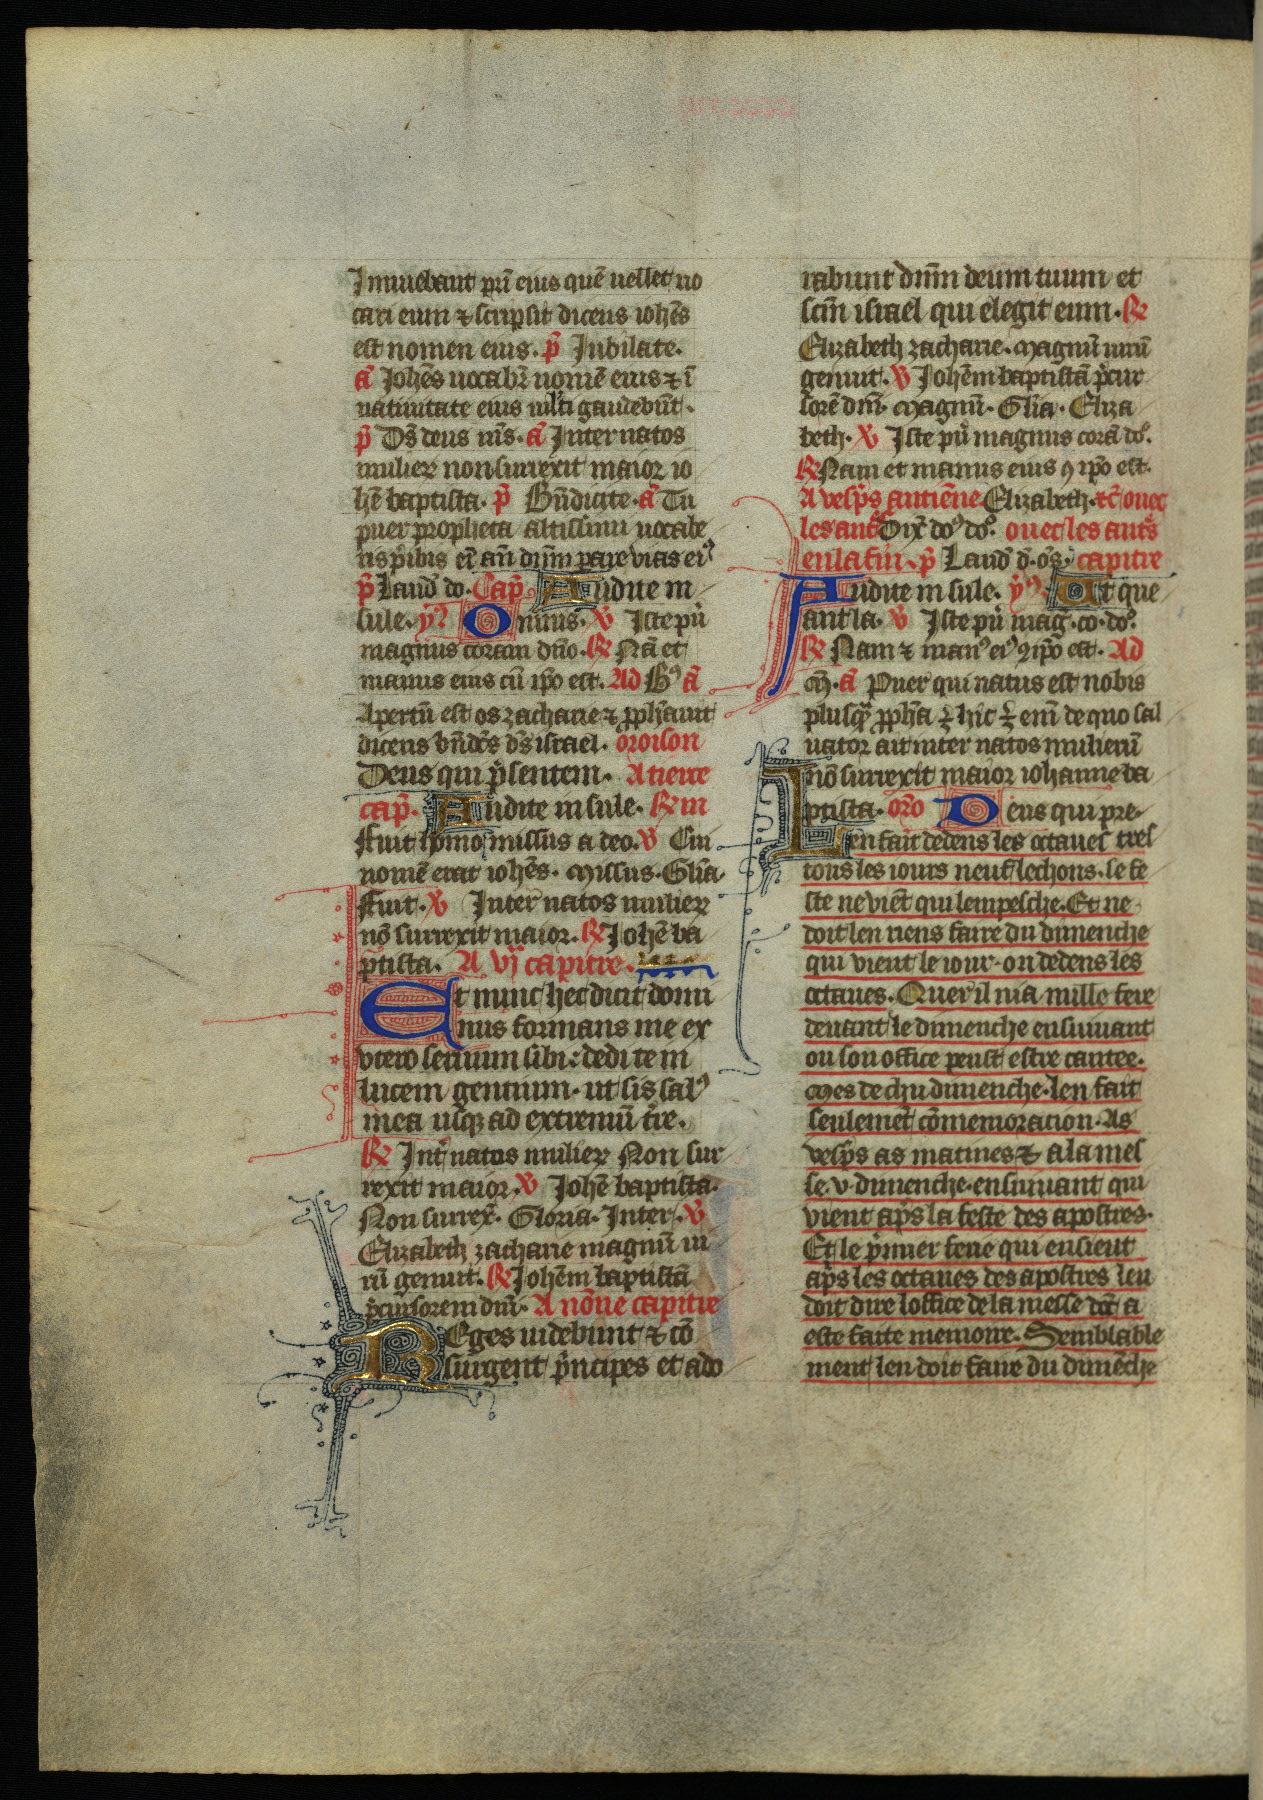 Innuebant pri eius quē uellet uo
cari eum ⁊ scripsit dicens iohēs
est nomen eius. p̄ Jubilate.
a᷉ Johēs uocabr̄ nomē eius ⁊ ī
natiuitate eius mlti gaudebūt.
p̄ Ds̄ deus ms̄. a᷉ Inter natos
mulieꝝ non surrexit maior io
hē baptista. p̄ Bn̄dicite. a᷉ Tu
puer propheta altissimi uocabe
ris p̄ibis eī an̄ dnm̄ parare vias eiꝰ
p̄ laud̄ do. Cap̄. Audite in
sule. ym̄ Omnis. ꝟ Iste pu̾
magnus coram dn̄o. ꝶ Nā et
manus eius cū ip̄o est. Ad Bꝰ a᷉
Apertū est os zacharie ⁊ ꝓph̄auit
dicens bn̄dc̄s ds̄ israel. oroison
Deus qui p̄sentem. A tierce
cap̄. Audite in sule. ꝶ in
Fuit homo missus a deo. ꝟ Cui
nomē erat iohēs. Missus. Glīa.
Fuit. ꝟ Inter natos mulieꝝ
nō surrexit maior. ꝶ Johē ba
ptista. A vj capitre.
Et nunc hec dicit domi
nus formans me ex
vtero seruum sibi: dedi te in
lucem gentium. ut sis salꝰ
mea usqꝫ ad extremū tr̄e.
ꝶ Int̄ natos mulieꝝ Non sur
rexit maior. ꝟ Johē baptista.
Non surrex̄. Gloria. Inter. ꝟ
Elizabeth zacharie magnū ui
rū genuit. ꝶ Johēm baptistā
p̄cursorem dnī. A nōne capitre
Reges uidebunt ⁊ cō
surgent p̄ncipes et ado
rabunt dnm̄ deum tuum et
scm̄ israel qui elegit eum. ꝶ
Elizabeth zacharie. magnū uirū
genuit. ꝟ Johēm baptistā p̄cur
sorē dnī. Magnū. Glīa. Eliza
beth. ꝟ Iste pu̾ magnus corā do̾.
ꝶ Nam et manus eius ꝯ ip̄o est.
A vesp̄s antiēne Elizabeth. ⁊c̄ ouec
les ant̾ Dix̄ doꝰ do̾. ouec les ant̄s
en la fin. p̄ Laud̄ d. os̄. capitre
Audite in sule. ym̄. Ut que
ant la. ꝟ Iste pu̾ mag. co. do̾.
ꝶ Nam ⁊ manꝰ eiꝰ ꝯ ip̄o est. Ad
m̄. a᷉ Puer qui natus est nobis
plusqꝫ ꝓph̄a ē hic ē enī de quo sal
uator ait inter natos mulierū
nō surrexit maior iohanne ba
ptista. orō Deus qui pre.
Len fait dedens les octaues tres
tous les iours neuf lechons. se fe
ste ne viēt qui lempesche. Et ne
doit len riens faire du dimenche
qui vient le iour. ou dedens les
octaues. Quer il nia nulle ferie
deuant le dimenche ensuiuant
ou son office peust estre cantee.
Mes de chu dimenche. len fait
seulemēt cōmemoracion. As
vesp̄s as matines ⁊ a la mes
se. v. dimenche. ensuiuant qui
vient ap̄s la feste des apostres.
Et le p̄mier ferie qui ensieut
ap̄s les octaues des apostres len
doit dire loffice de la messe dōt a
este faite memoire. Semblable
ment len doit faire du dimēche